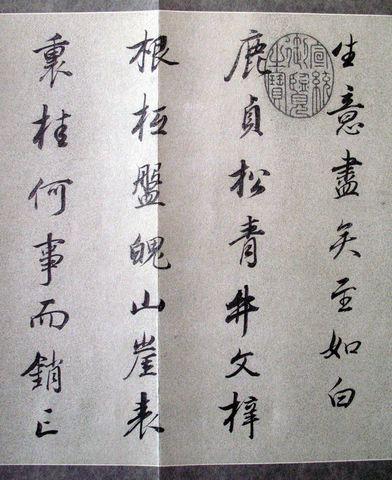 宣統御覽之寶
生意盡矣至如白
鹿貞松青牛文梓
根柢盤魄山崖表
裏桂何事而銷亡